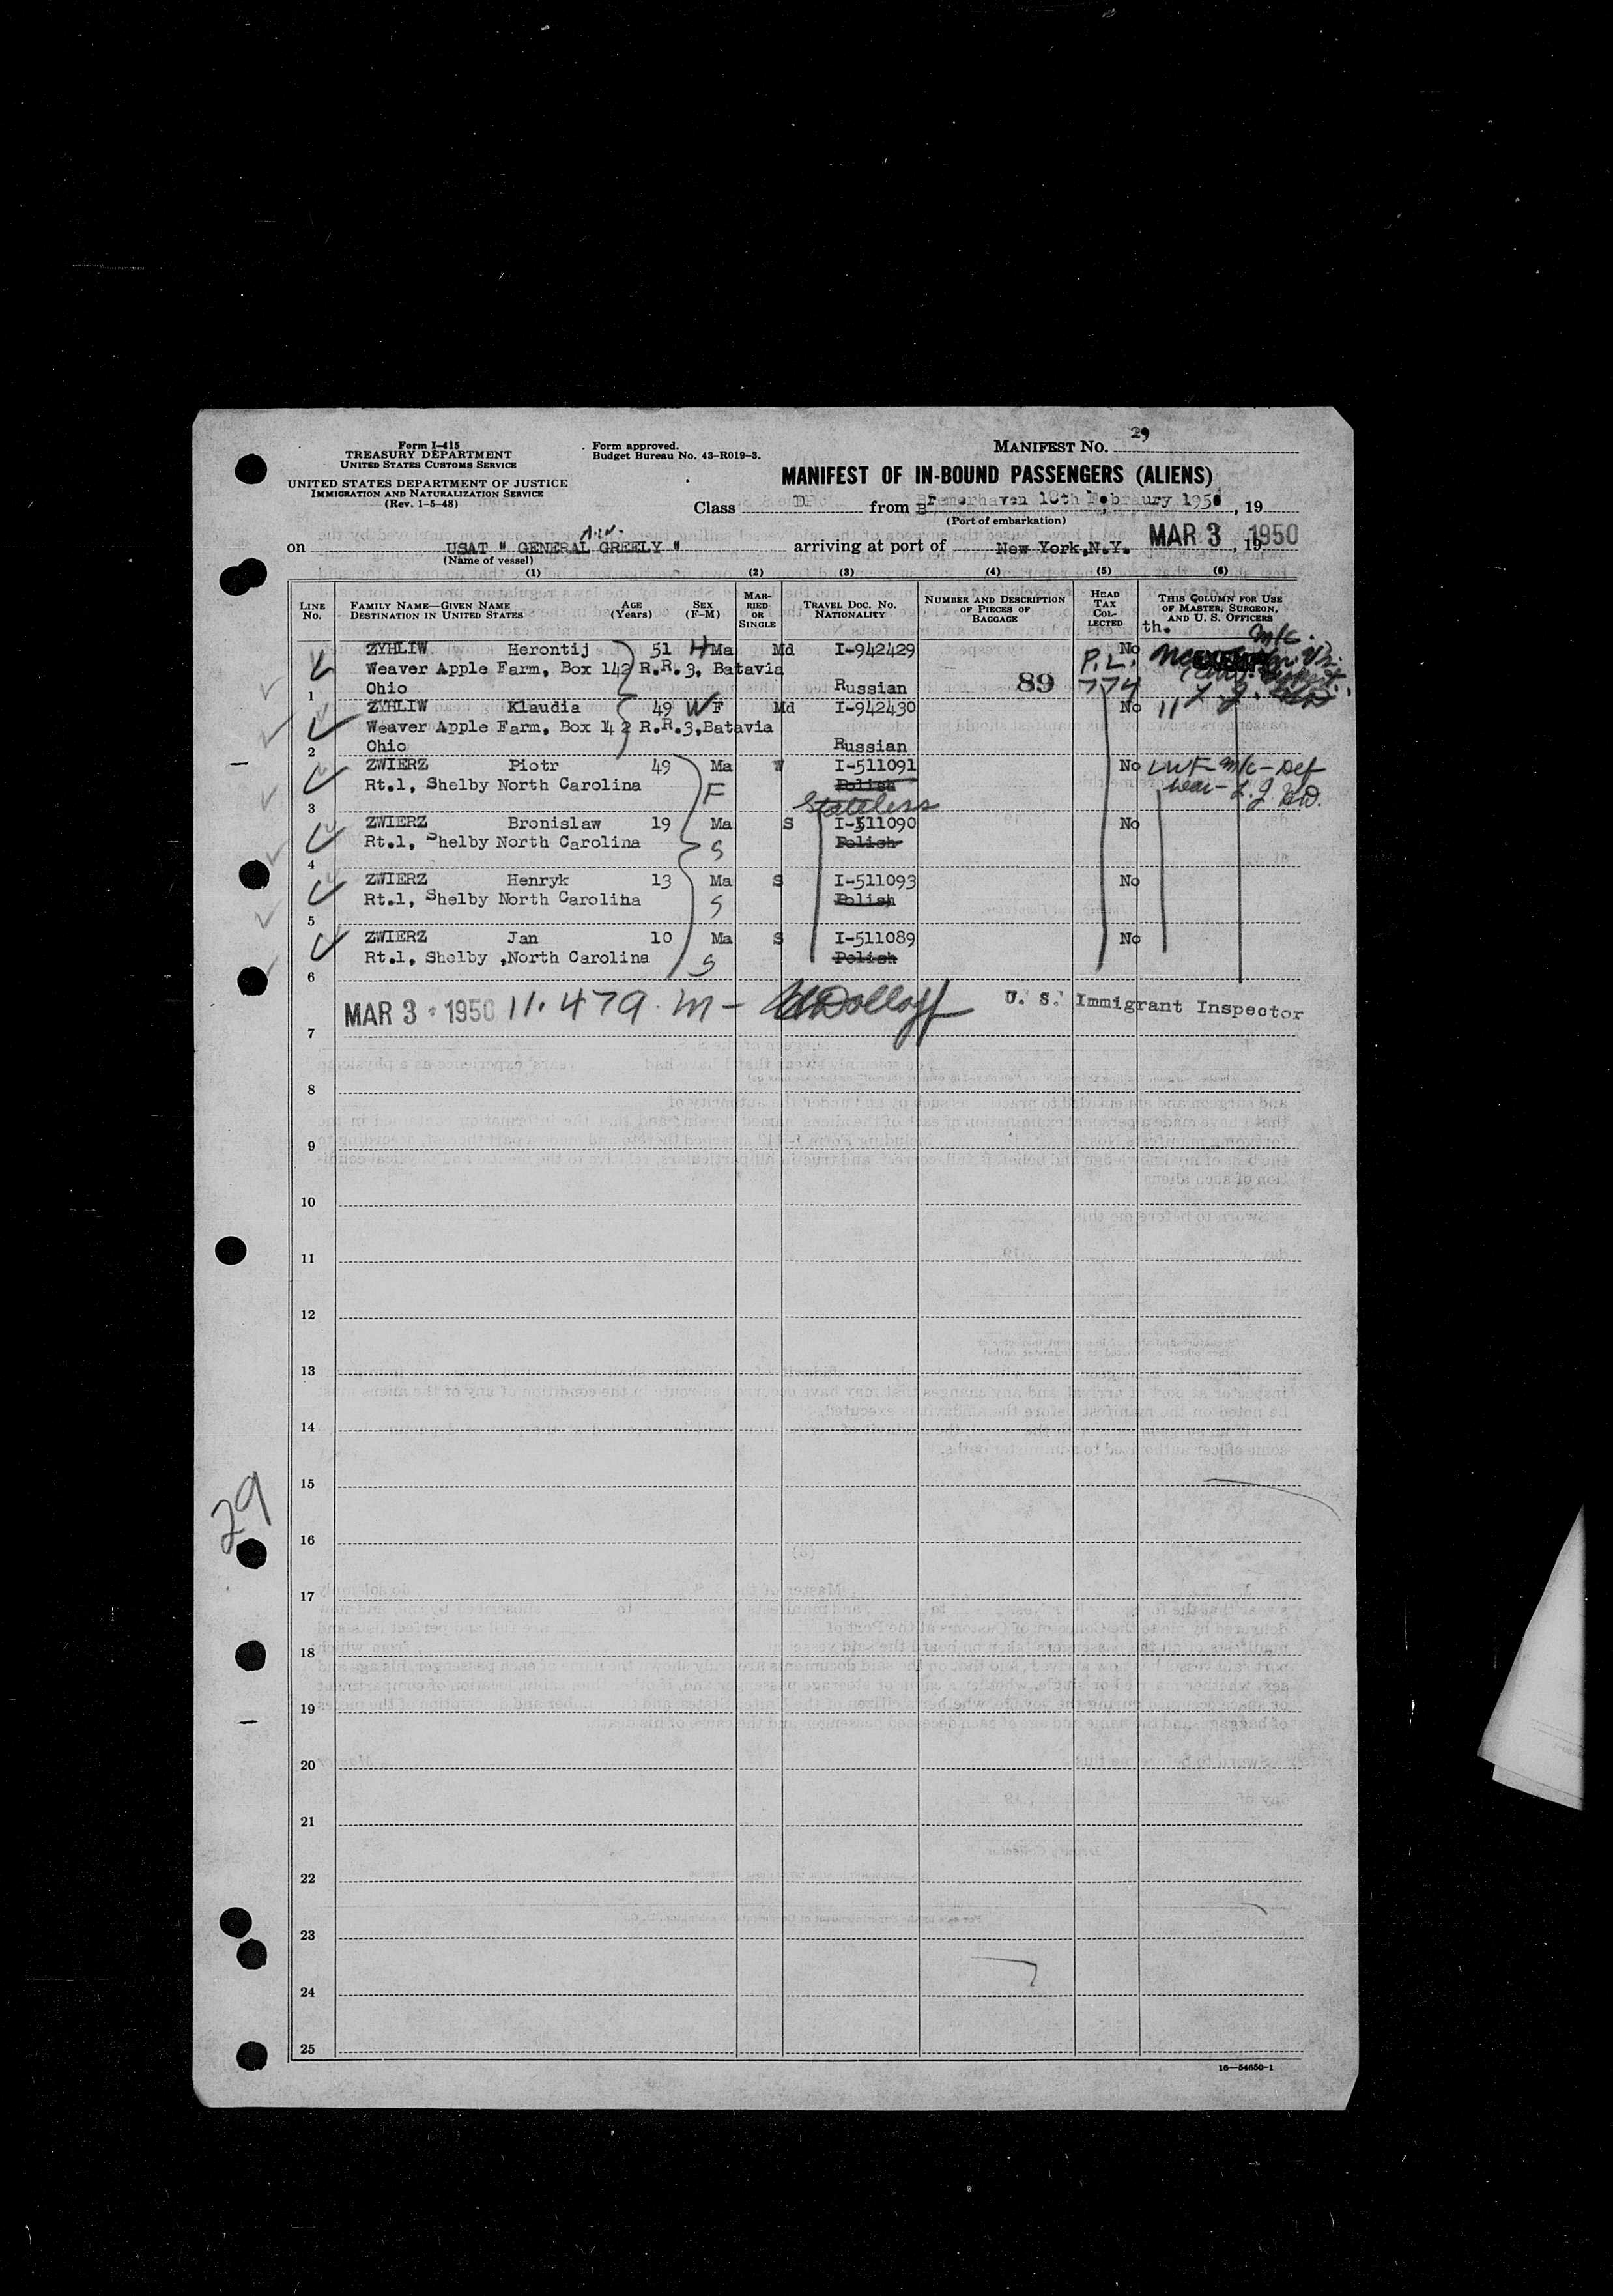 Form I-415
TREASURY DEPARTMENT
UNITED STATES CUSTOMS SERVICE
UNITED STATES DEPARTMENT OF JUSTICE
IMMIGRATION AND NATURALIZATION SERVICE
(Rev. 1-5-48)
Form approved.
Budget Bureau No. 43-R019-3.
MANIFEST No. 29
MANIFEST OF IN-BOUND PASSENGERS (ALIENS)
Class DP from Bremerhaven 18th Febraury 1950, 19
(Port of embarkation)
on USAT " GENERAL GREELY " arriving at port of New York,N.Y. MAR 3 , 19 1950
(Name of vessel)
(1) (2) (3) (4) (5) (6)
LINE No. FAMILY NAME—GIVEN NAME DESTINATION IN UNITED STATES AGE (Years) SEX (F-M) MARRIED OR SINGLE TRAVEL DOC. NO. NATIONALITY NUMBER AND DESCRIPTION OF PIECES OF BAGGAGE HEAD TAX COLLECTED THIS COLUMN FOR USE OF MASTER, SURGEON, AND U. S. OFFICERS
th.
m/c.
ZYHLIW Herontij 51 H Ma Md I-942429 No
Weaver Apple Farm, Box 142 R.R.3, Batavia P.L.
1 Ohio Russian 89 774
ZYHLIW Klaudia 49 W F Md I-942430 No 11
Weaver Apple Farm, Box 142 R.R.3,Batavia
2 Ohio Russian
ZWIERZ Piotr 49 Ma W I-511091 No LWF m/c - Def
Rt.1, Shelby North Carolina F Polish hear-
3 Stateless
ZWIERZ Bronislaw 19 Ma S I-511090 No
Rt.1, Shelby North Carolina S Polish
4
ZWIERZ Henryk 13 Ma S I-511093 No
Rt.1, Shelby North Carolina S Polish
5
ZWIERZ Jan 10 Ma S I-511089 No
Rt.1, Shelby ,North Carolina S Polish
6
MAR 3 1950 11.479.m - U. S. Immigrant Inspector
7
8
9
10
11
12
13
14
15
29
16
17
18
19
20
21
22
23
24
25
16—54650-1